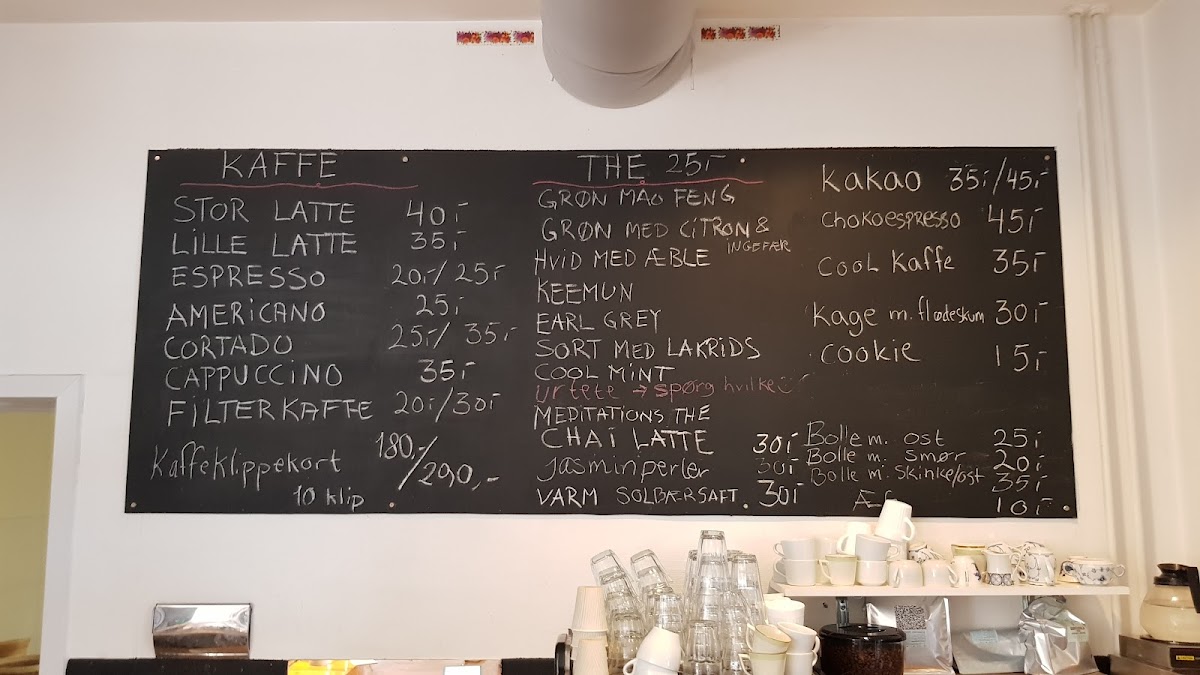 KAFFE
STOR LATTE 40,-
LILLE LATTE 35,-
ESPRESSO 20,-/25,-
AMERICANO 25,-
CORTADO 25,-/35,-
CAPPUCCINO 35,-
FILTERKAFFE 20,-/30,-
Kaffeklippekort 180,-/290,-
10 klip
THE 25,-
GRØN MAO FENG
GRØN MED CITRON &
INGEFÆR
HVID MED ÆBLE
KEEMUN
EARL GREY
SORT MED LAKRIDS
COOL MINT
urtete → spørg hvilke
MEDITATIONS THE
CHAI LATTE 30,-
Jasminperler 30,-
VARM SOLBÆRSAFT 30,-
Kakao 35,-/45,-
Chokoespresso 45,-
COOL Kaffe 35,-
Kage m. flødeskum 30,-
Cookie 15,-
Bolle m. ost 25,-
Bolle m. smør 20,-
Bolle m. skinke/ost 35,-
10,-